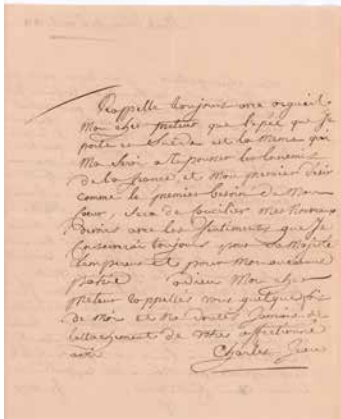 Rappelle toujours avec orgueil
Mon cher que l'epée que Je
porte en Suède est la meme qui
Ma Servi a repousser les Ennemis
de la france et Mon premier désir
comme le premier besoin de Mon
Coeur, Sera de Concilier Mes Nouveaux
devoirs avec les Sentiments que Je
Conserverai toujours pour Sa Majesté
l'empereur et pour Mon ancienne
patrie adieu Mon cher
rappelles vous quelque fois
de Moi et Ne doutez Jamais de
l'attachement de votre affectionné
ami
Charles Jean